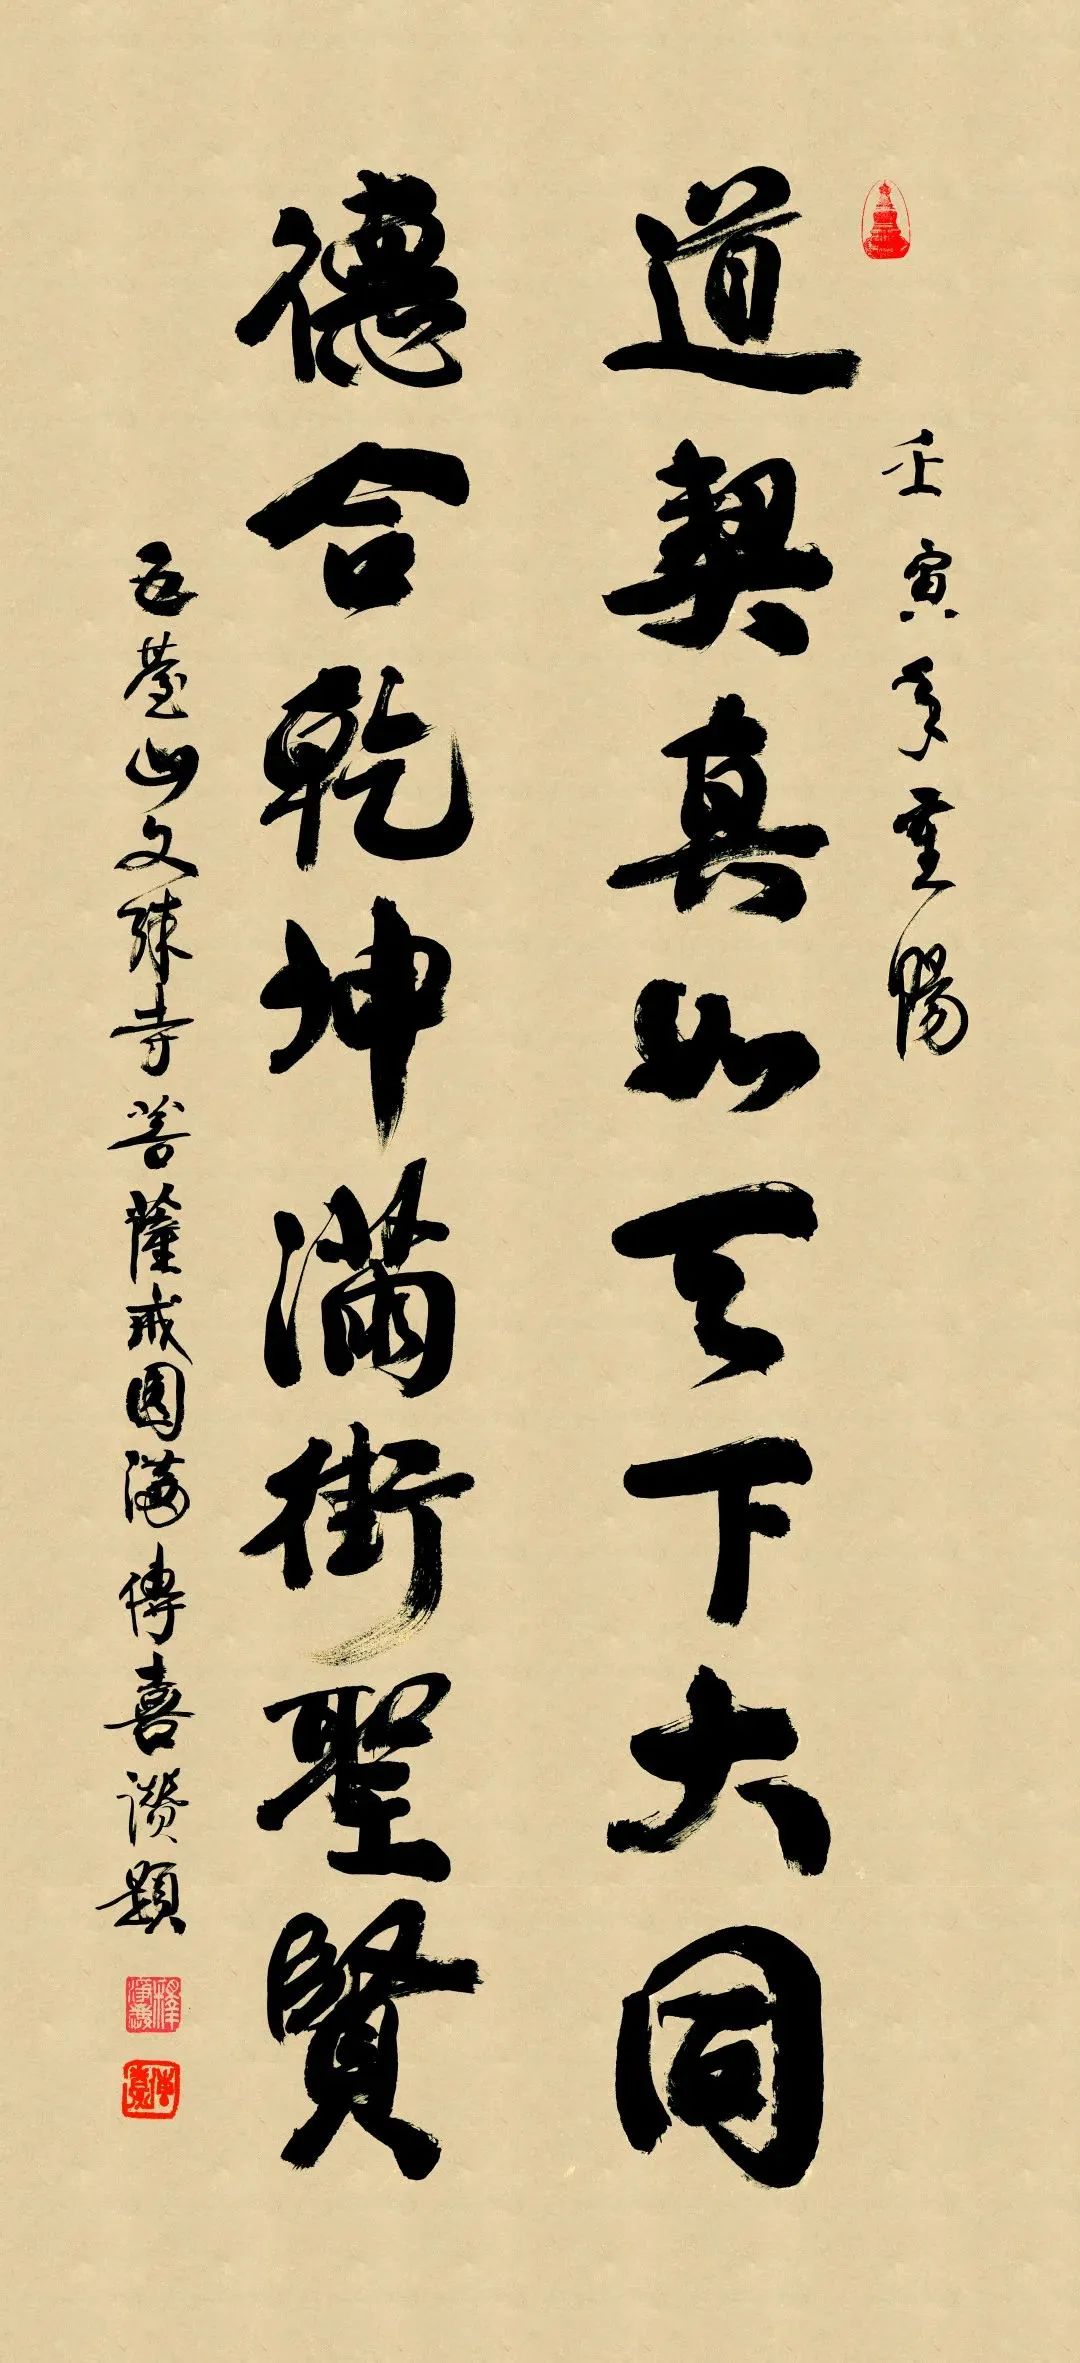 壬寅年重陽
道契真如天下大同
德合乾坤滿街聖賢
五臺山文殊寺菩薩戒圓滿傳喜讚題